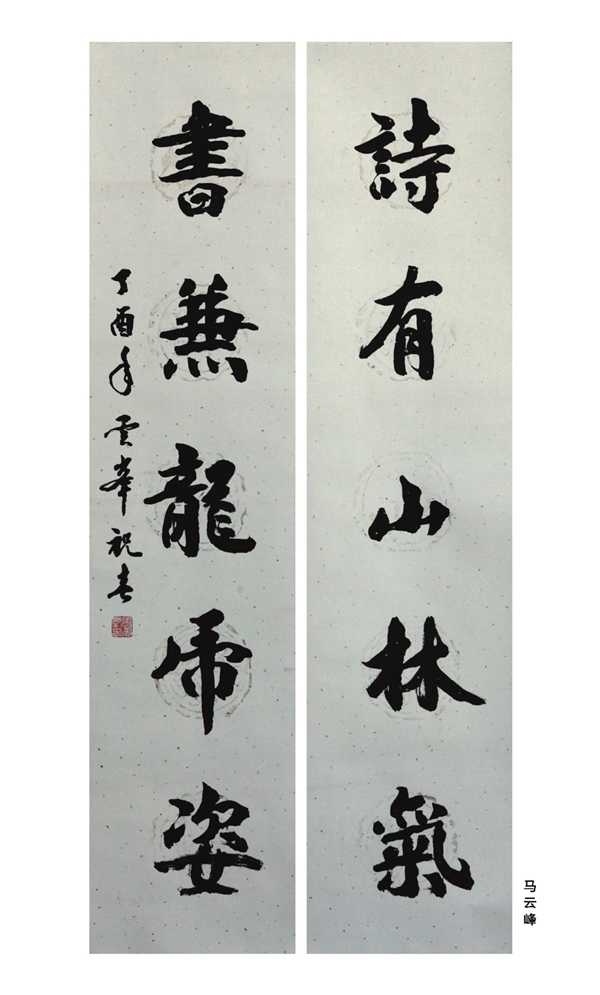 詩有山林氣
書兼龍虎姿
丁酉年雲峯祝吉
马云峰